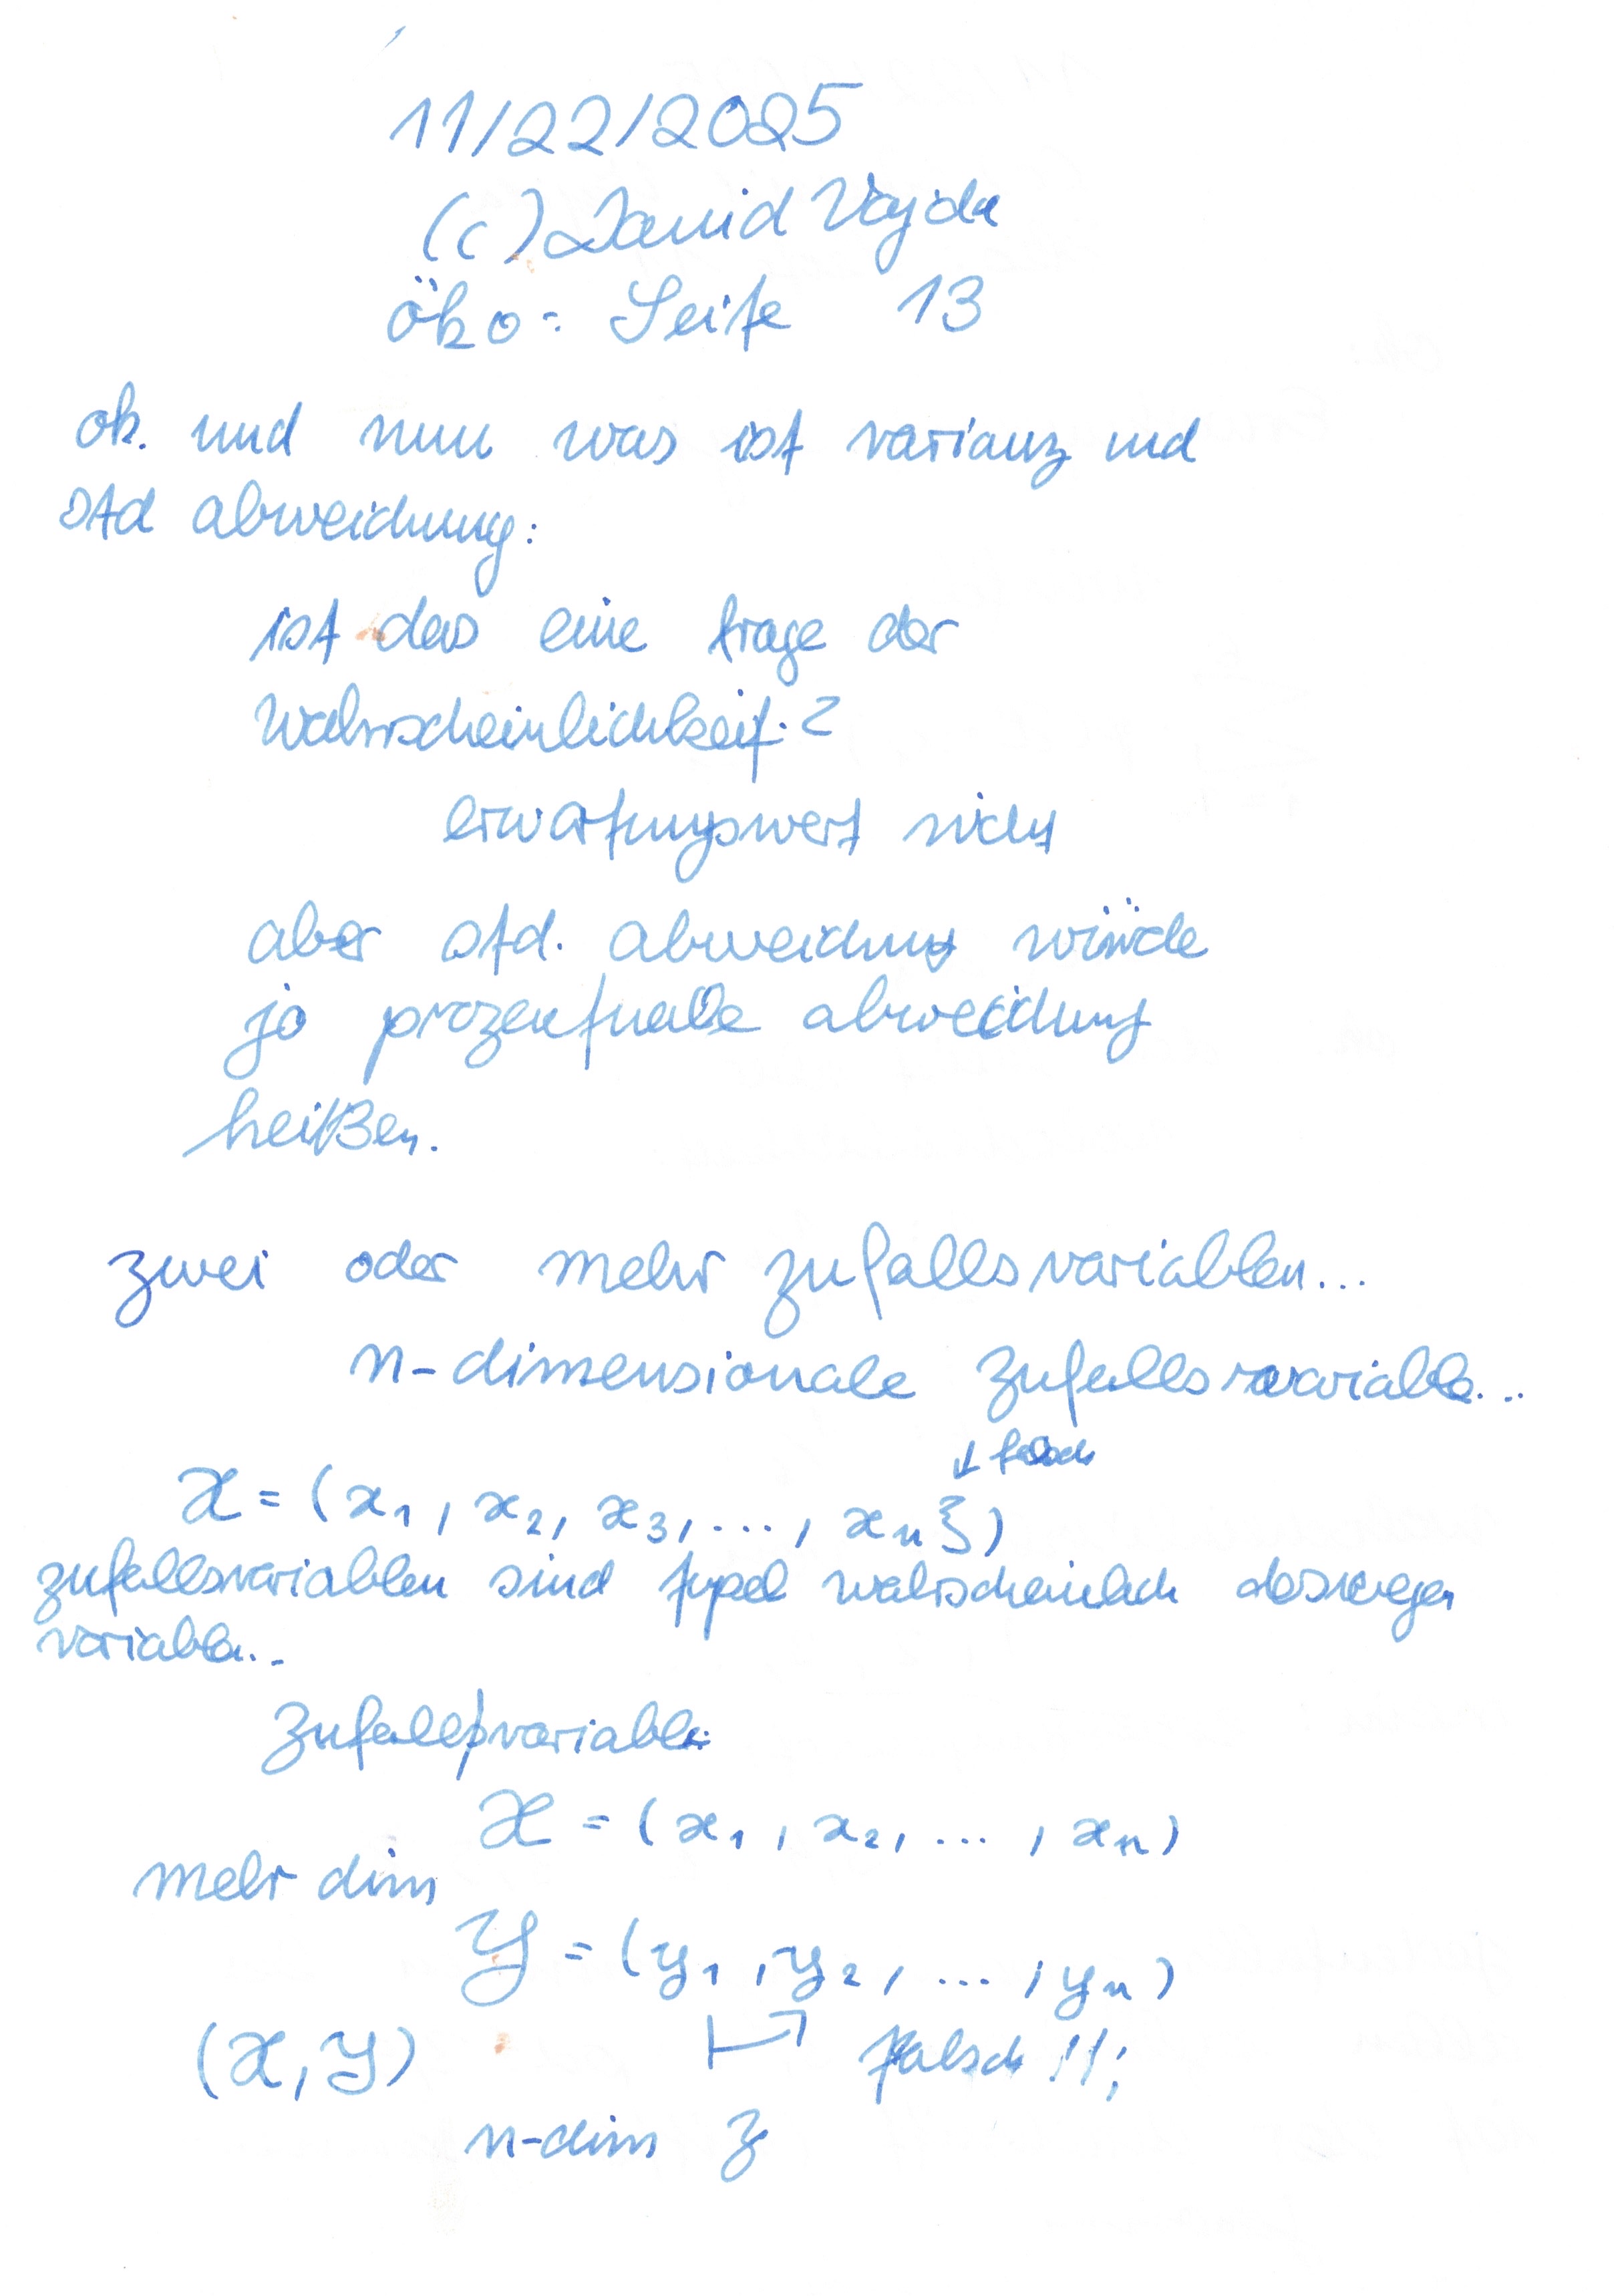 11/22/2025
(c) David Vajda
öko: Seite 13
ok. und nun was ist varianz und
std abweichung:
ist das eine frage der
Wahrscheinlichkeit:?
erwartungswert nicht
aber std. abweichung würde
ja prozentualle abweichung
heißen.
zwei oder mehr zufallsvariablen...
n-dimensionale Zufallsvariable...
↓ falsch
X = (x1, x2, x3, ..., xn})
zufallsvariablen sind tupel wahrscheinlich deswegen
variablen...
Zufallsvariable:
X = (x1, x2, ..., xn)
mehr dim
Y = (y1, y2, ..., yn)
(X, Y) falsch!!;
n-dim Z